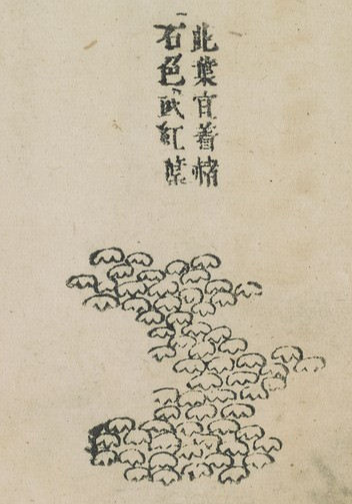 此葉宜着赭
石色或紅葉